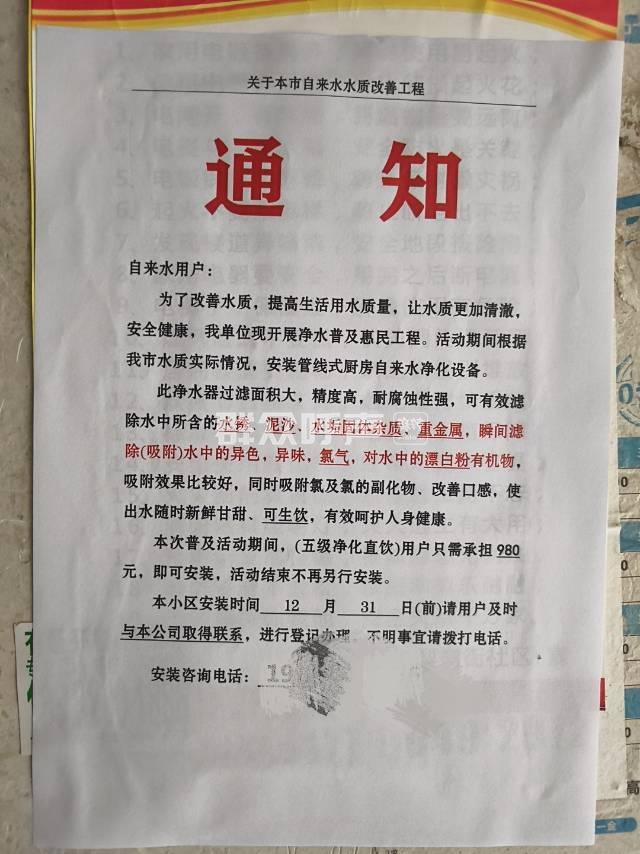 关于本市自来水水质改善工程
通 知
自来水用户：
为了改善水质，提高生活用水质量，让水质更加清澈，
安全健康，我单位现开展净水普及惠民工程。活动期间根据
我市水质实际情况，安装管线式厨房自来水净化设备。
此净水器过滤面积大，精度高，耐腐蚀性强，可有效滤
除水中所含的水锈、泥沙、水垢固体杂质、重金属，瞬间滤
除(吸附)水中的异色，异味，氯气，对水中的漂白粉有机物，
吸附效果比较好，同时吸附氯及氯的副化物、改善口感，使
出水随时新鲜甘甜、可生饮，有效呵护人身健康。
本次普及活动期间，(五级净化直饮)用户只需承担 980
元，即可安装，活动结束不再另行安装。
本小区安装时间 12 月 31 日(前)请用户及时
与本公司取得联系，进行登记办理，不明事宜请拨打电话。
安装咨询电话： 19
群众呼声